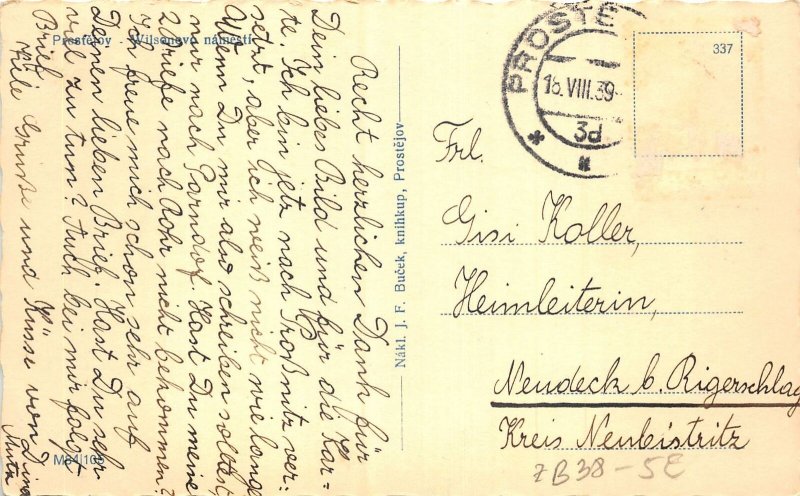 Prostějov - Wilsonovo náměstí
Recht herzlichen Dank für
Dein liebes Bild und für die Kar-
te. Ich bin jetz nach Proßnitz ver-
setzt, aber ich weiß nicht wie lange
Wenn Du mir also schreiben solltest
nur nach Parndorf. Hast Du meine
2 Briefe nach Rohr nicht bekommen?
Ich freue mich schon sehr auf
Deinen lieben Brief. Hast Du sehr
viel zu tun? Auch bei mir folgt
Brief
Viele Grüße und Küsse von
M84/105
Nákl. J. F. Buček, knihkup, Prostějov
PROSTĚ
VIII.39
3d
337
Frl.
Gisi Koller,
Heimleiterin,
Neudeck b. Rigerschlag
Kreis Neubistritz
ZB38-5E